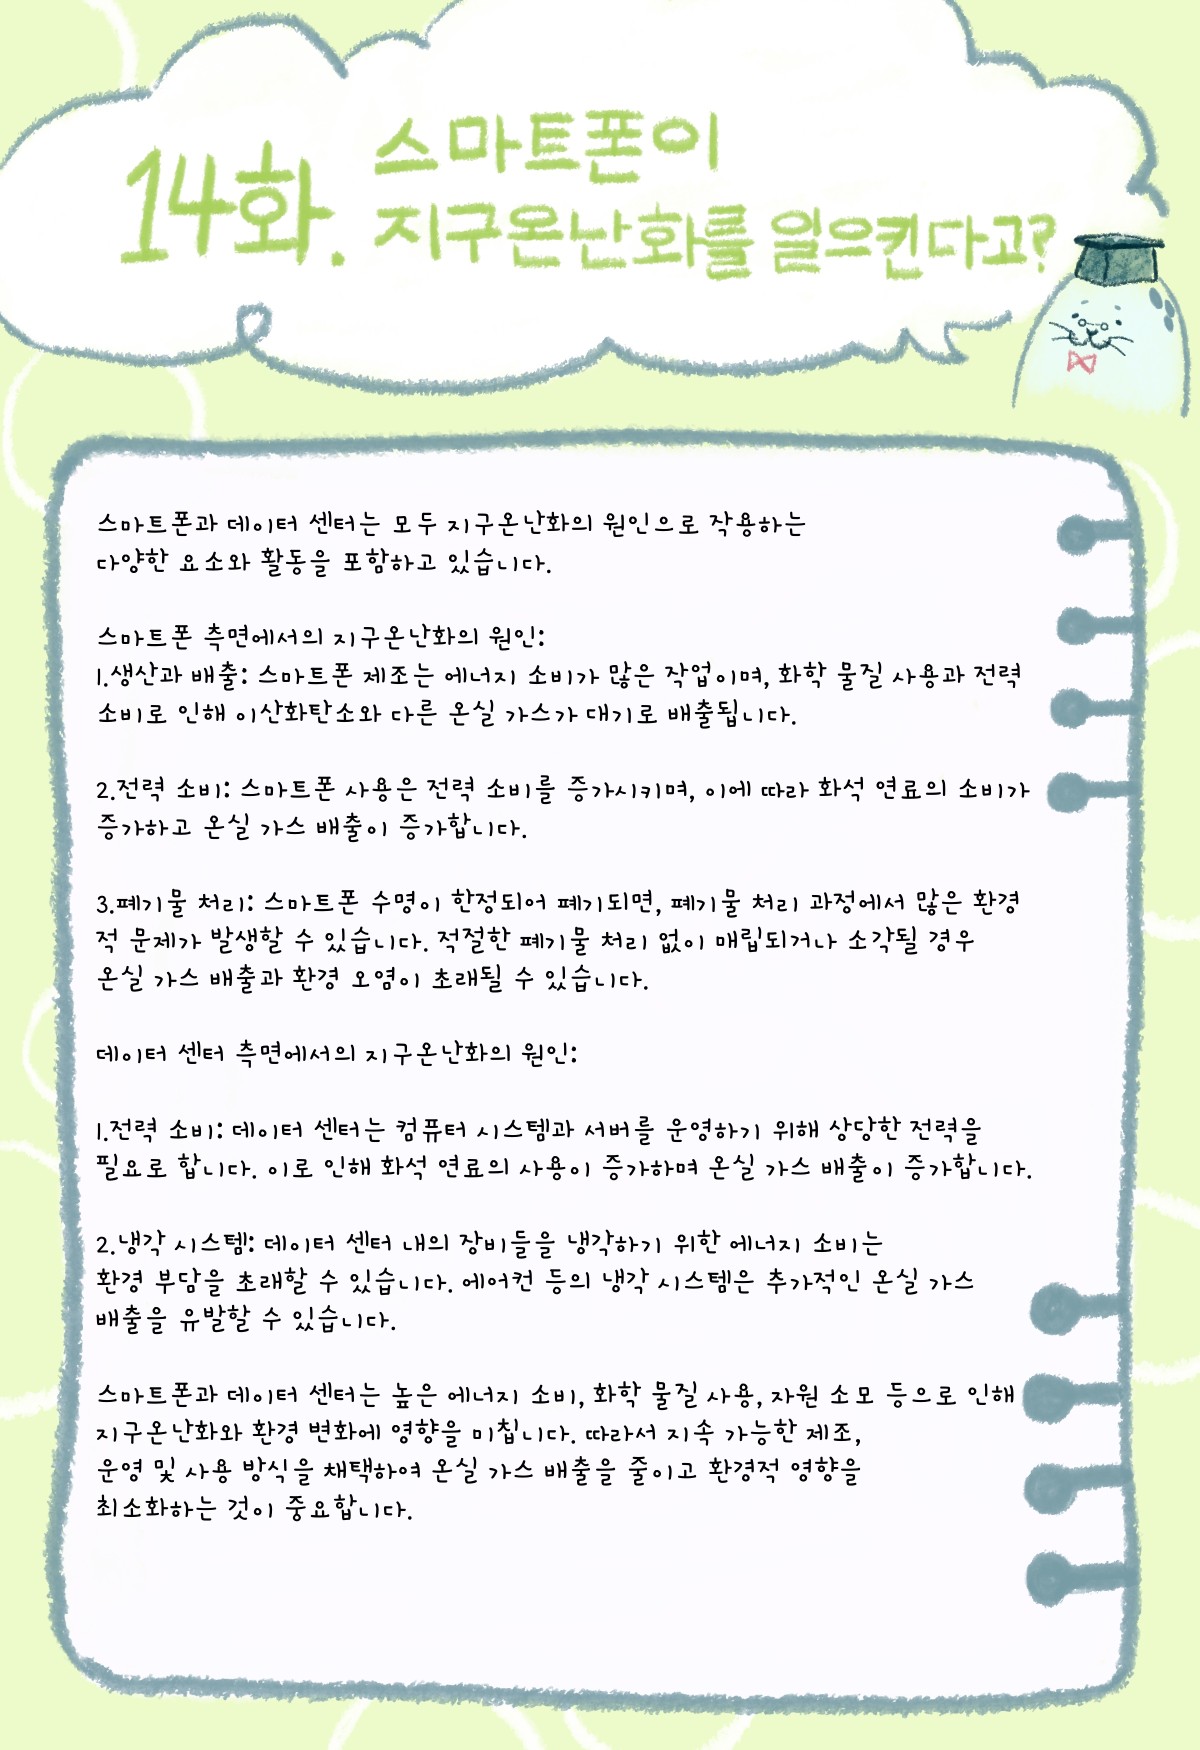 14화.
스마트폰이
지구온난화를 일으킨다고?
스마트폰과 데이터 센터는 모두 지구온난화의 원인으로 작용하는
다양한 요소와 활동을 포함하고 있습니다.
스마트폰 측면에서의 지구온난화의 원인:
1.생산과 배출: 스마트폰 제조는 에너지 소비가 많은 작업이며, 화학 물질 사용과 전력
소비로 인해 이산화탄소와 다른 온실 가스가 대기로 배출됩니다.
2.전력 소비: 스마트폰 사용은 전력 소비를 증가시키며, 이에 따라 화석 연료의 소비가
증가하고 온실 가스 배출이 증가합니다.
3.폐기물 처리: 스마트폰 수명이 한정되어 폐기되면, 폐기물 처리 과정에서 많은 환경
적 문제가 발생할 수 있습니다. 적절한 폐기물 처리 없이 매립되거나 소각될 경우
온실 가스 배출과 환경 오염이 초래될 수 있습니다.
데이터 센터 측면에서의 지구온난화의 원인:
1.전력 소비: 데이터 센터는 컴퓨터 시스템과 서버를 운영하기 위해 상당한 전력을
필요로 합니다. 이로 인해 화석 연료의 사용이 증가하며 온실 가스 배출이 증가합니다.
2.냉각 시스템: 데이터 센터 내의 장비들을 냉각하기 위한 에너지 소비는
환경 부담을 초래할 수 있습니다. 에어컨 등의 냉각 시스템은 추가적인 온실 가스
배출을 유발할 수 있습니다.
스마트폰과 데이터 센터는 높은 에너지 소비, 화학 물질 사용, 자원 소모 등으로 인해
지구온난화와 환경 변화에 영향을 미칩니다. 따라서 지속 가능한 제조,
운영 및 사용 방식을 채택하여 온실 가스 배출을 줄이고 환경적 영향을
최소화하는 것이 중요합니다.